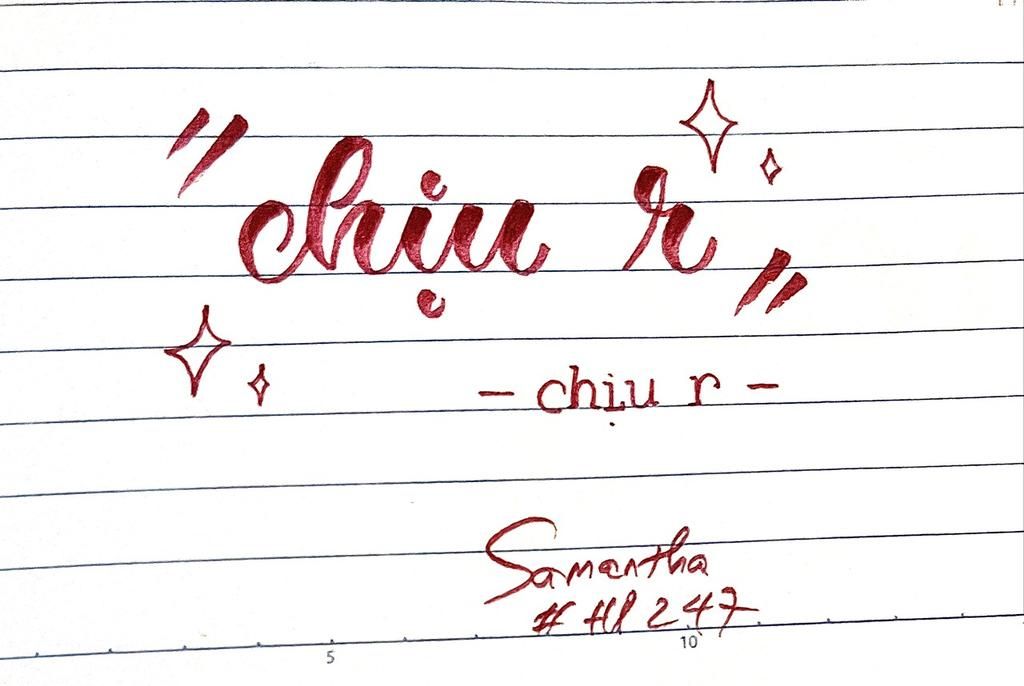 "chịu r"
- chịu r -
Samantha
# Hl 247
5 10